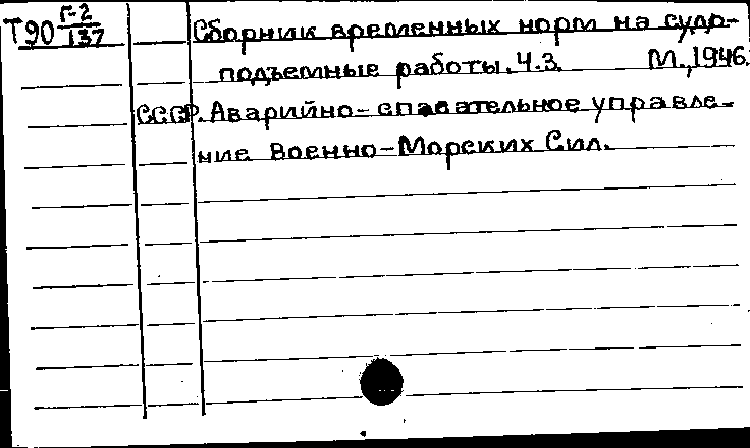 Т90 Г-2/137
Сборник временных норм на судо-
подъемные работы. Ч.3. М., 1946.
СССР. Аварийно-спасательное управле-
ние Военно-Морских Сил.